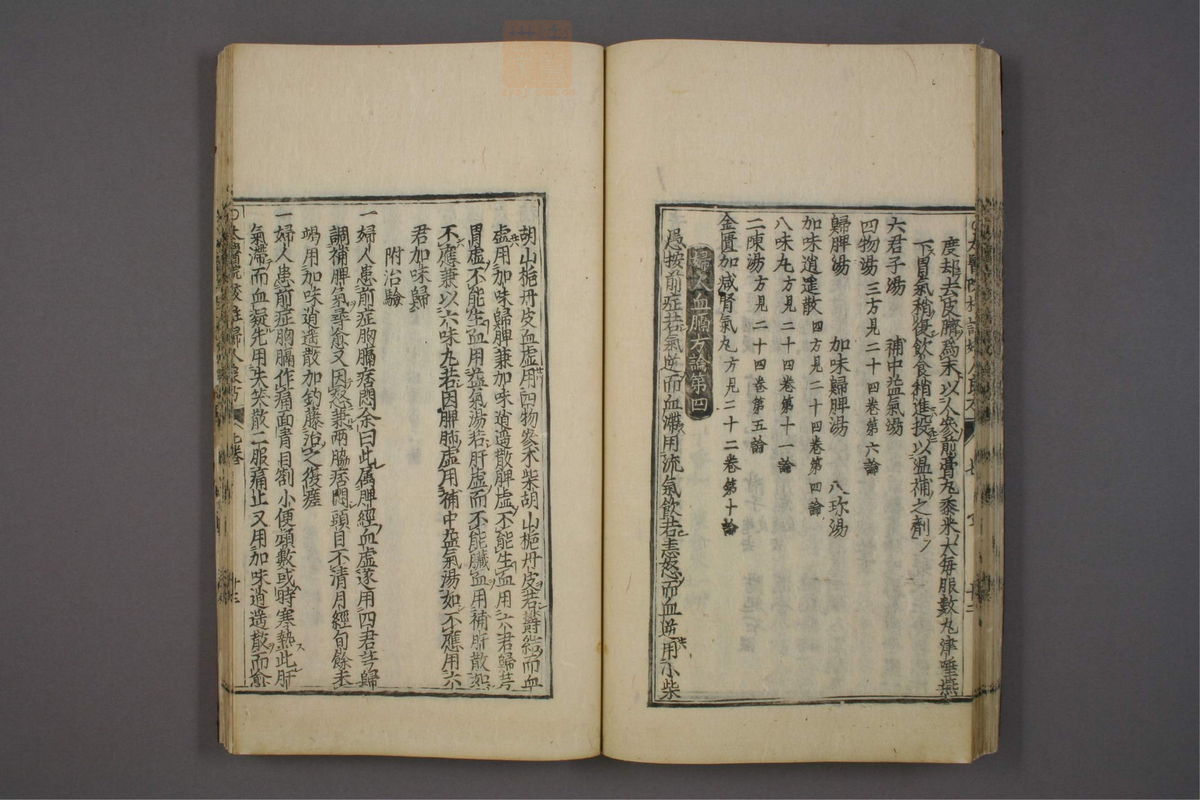 度却去皮臍為末以人參煎膏丸黍米大每服數丸津唾燕
下胃氣稍復飲食稍進投以溫補之劑
六君子湯　補中益氣湯
四物湯三方見二十四卷第六論
歸脾湯　加味歸脾湯　八珍湯
加味逍遙散四方見二十四卷第四論
八味丸方見二十四卷第十一論
二陳湯方見二十四卷第五論
金匱加减腎氣丸方見二十二卷第十論
婦人血膈方論第四
愚按前症若氣逆而血滯用流氣飲若恚怒而血逆用小柴
胡山梔丹皮血虛用四物參朮柴胡山梔丹皮若欝結而血
虛用加味歸脾兼加味逍遙散脾虛不能生血用六君歸芎
胃虛不能生血用益氣湯若肝虛而不能臟血用補肝散如
不應兼以六味丸若因脾肺虛用補中益氣湯如不應用六
君加味歸
附治驗
一婦人患前症胸膈痞悶余曰此属脾經血虛遂用四君芎歸
調補脾氣尋愈又因怒兼兩脇痞悶頭目不清月經旬餘未
竭用加味逍遙散加鈎藤治之復瘥
一婦人患前症胸膈作痛面青目劄小便頻數或時寒熱此肝
氣滯而血凝先用失笑散二服痛止又用加味逍遙散而愈